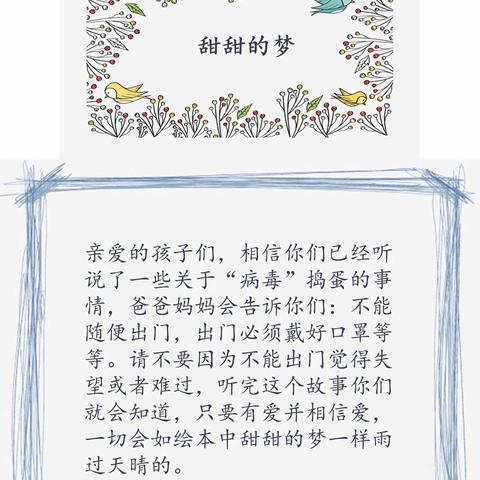 甜甜的梦
亲爱的孩子们，相信你们已经听
说了一些关于“病毒”捣蛋的事
情，爸爸妈妈会告诉你们：不能
随便出门，出门必须戴好口罩等
等。请不要因为不能出门觉得失
望或者难过，听完这个故事你们
就会知道，只要有爱并相信爱，
一切会如绘本中甜甜的梦一样雨
过天晴的。